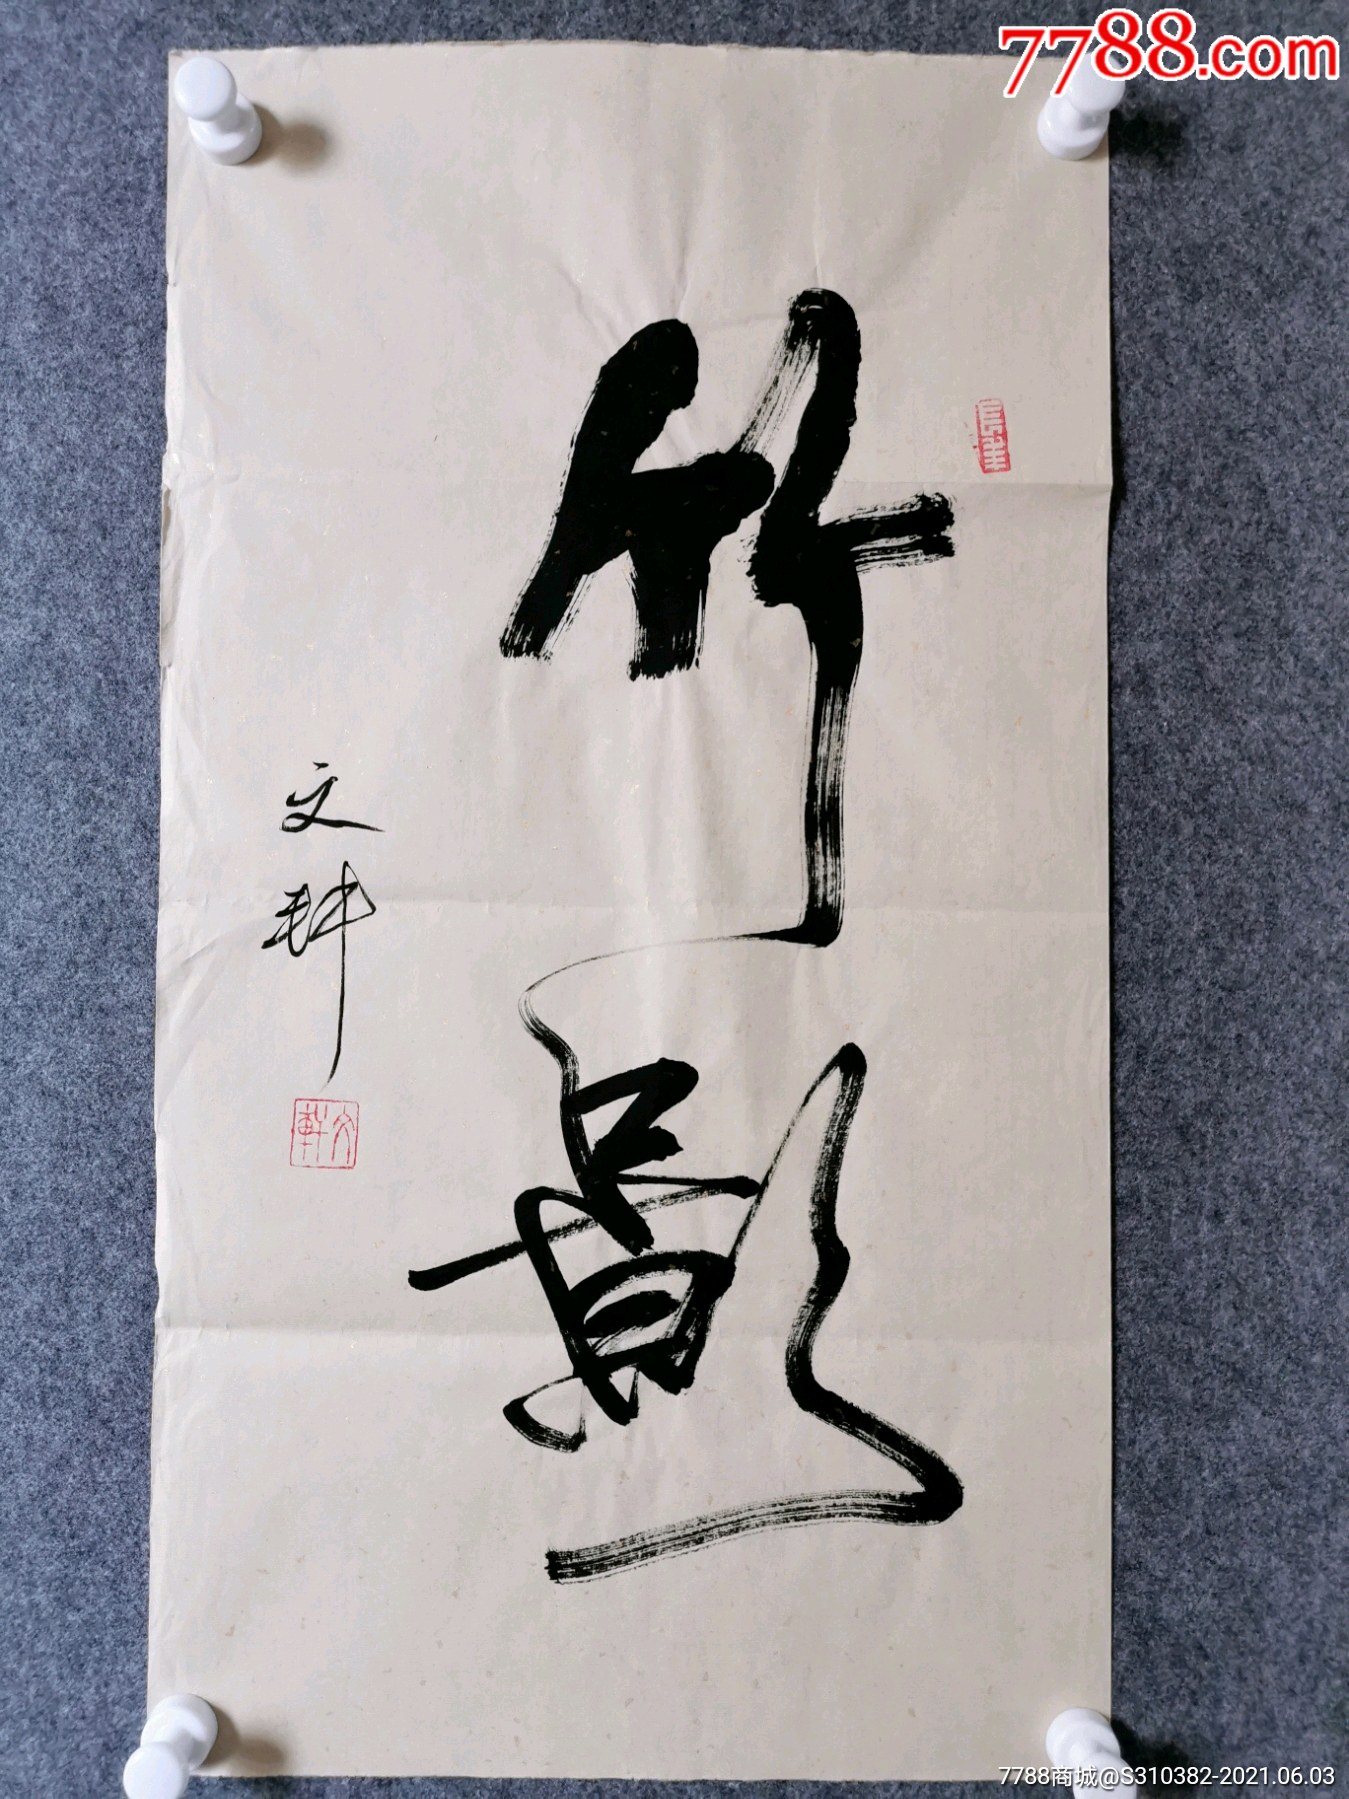 7788.com
竹影
文軒
7788商城@S310382-2021.06.03